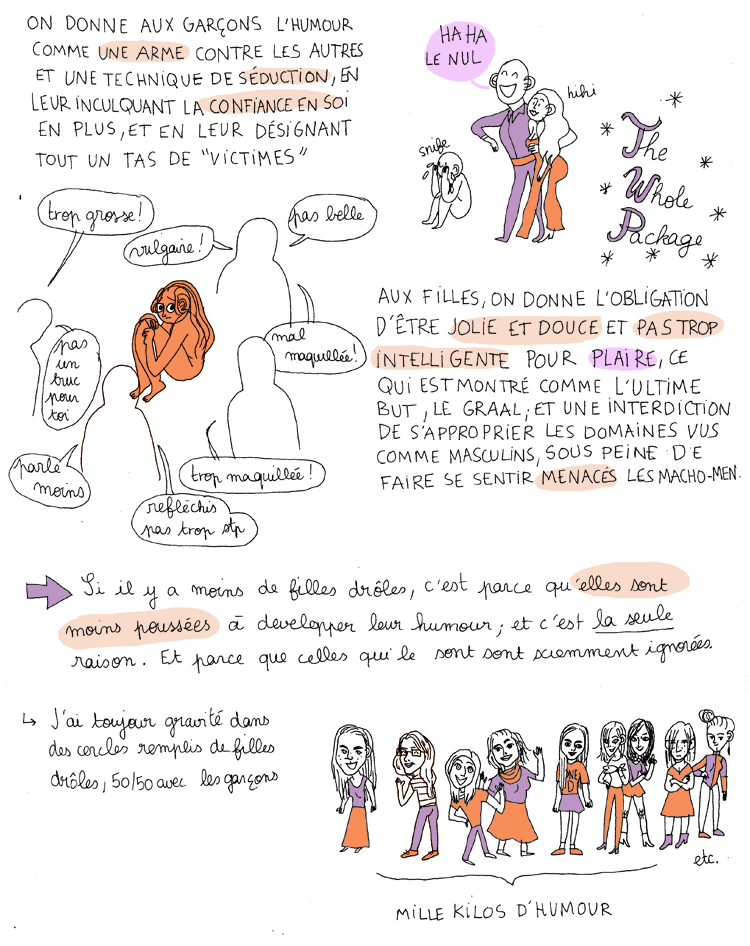 ON DONNE AUX GARÇONS L'HUMOUR
COMME UNE ARME CONTRE LES AUTRES
ET UNE TECHNIQUE DE SÉDUCTION, EN
LEUR INCULQUANT LA CONFIANCE EN SOI
EN PLUS, ET EN LEUR DÉSIGNANT
TOUT UN TAS DE "VICTIMES"
HA HA
LE NUL
hihi
snife
The
Whole
Package
trop grosse!
vulgaire!
pas belle
pas
un
truc
pour
toi
mal
maquillée!
parle
moins
trop maquillée!
reflèchis
pas trop stp
AUX FILLES, ON DONNE L'OBLIGATION
D'ÊTRE JOLIE ET DOUCE ET PAS TROP
INTELLIGENTE POUR PLAIRE, CE
QUI EST MONTRÉ COMME L'ULTIME
BUT, LE GRAAL; ET UNE INTERDICTION
DE S'APPROPRIER LES DOMAINES VUS
COMME MASCULINS, SOUS PEINE DE
FAIRE SE SENTIR MENACÉS LES MACHO-MEN.
Si il y a moins de filles drôles, c'est parce qu'elles sont
moins poussées à developper leur humour; et c'est la seule
raison. Et parce que celles qui le sont sont sciemment ignorées.
↳ J'ai toujour gravité dans
des cercles remplis de filles
drôles, 50/50 avec les garçons
etc.
MILLE KILOS D'HUMOUR